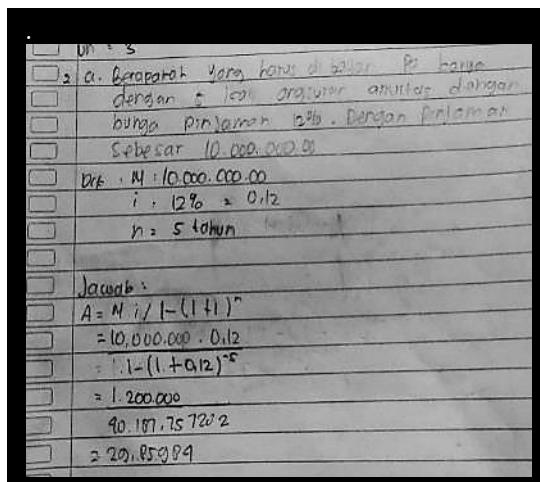 2 a. Berapakah yang harus di bayar
dengan 5 kali angsuran anuitas dengan
bunga pinjaman 12%. Dengan Pinjaman
Sebesar 10.000.000.00
Dik : M : 10.000.000.00
i : 12% = 0,12
n = 5 tahun
Jawab :
A = M i / 1-(1+1)ⁿ
= 10,000.000 . 0,12
1-(1.+0,12)⁻⁵
= 1.200.000
= 29.85984